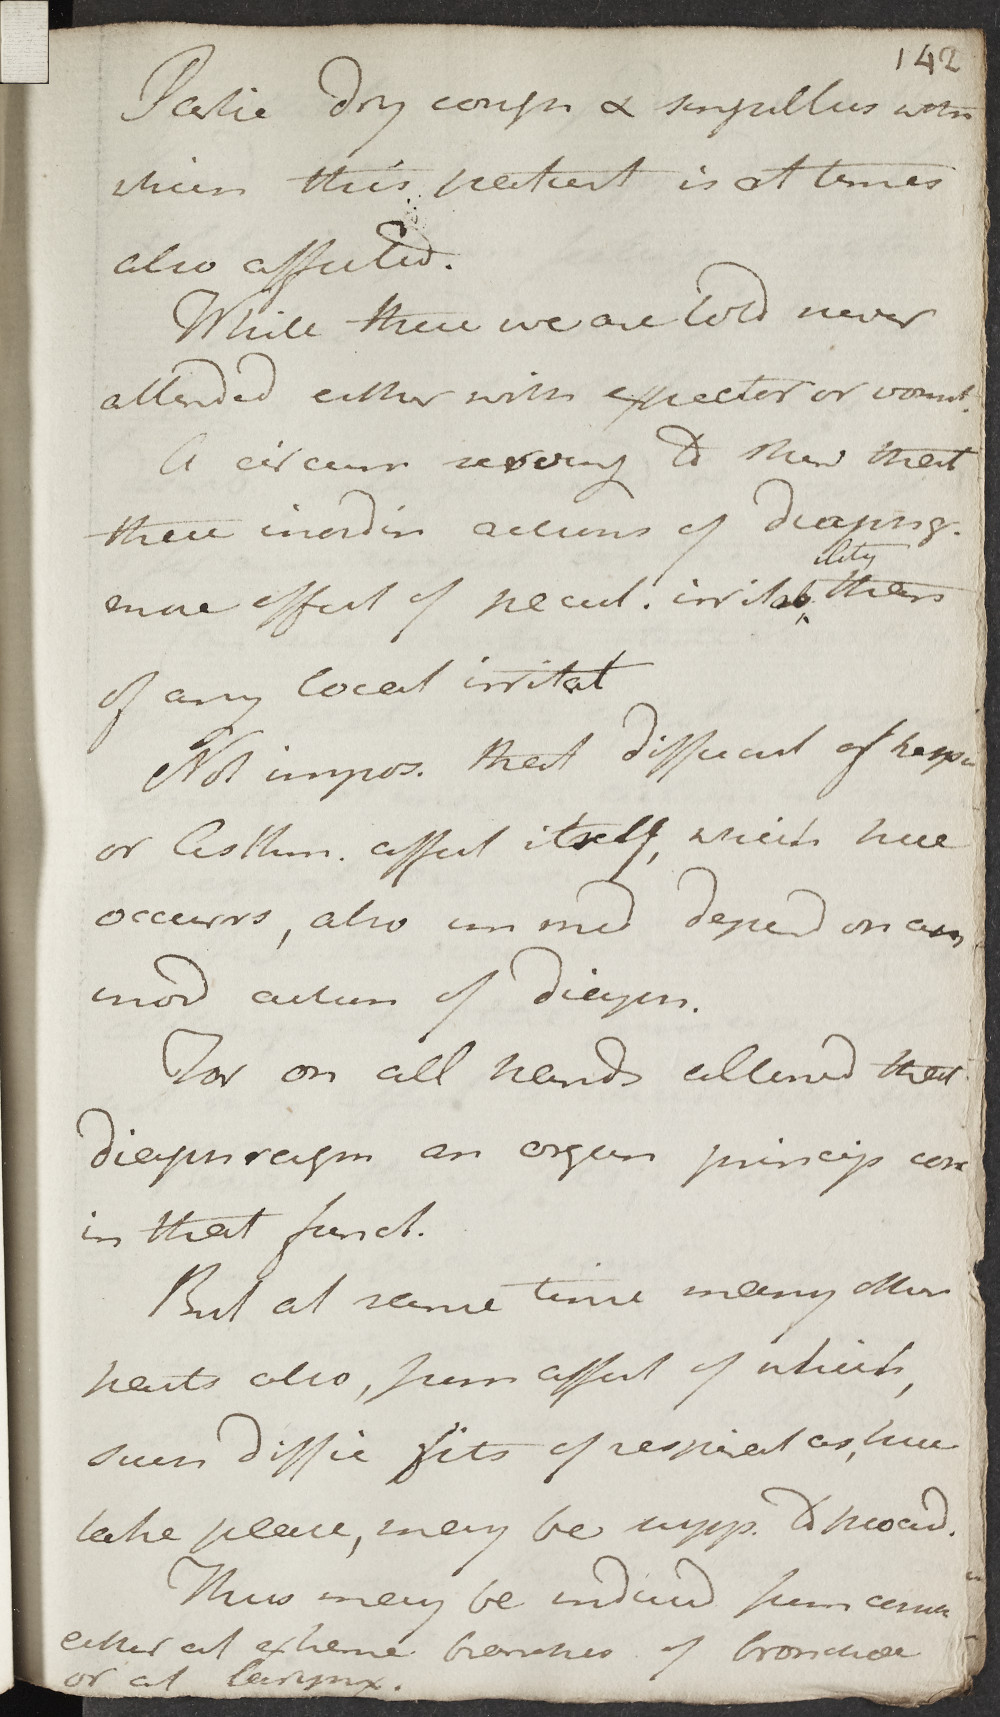 142
dry cough & singultus with
which this patient is at times
also affected.
While these we are told never
attended either with expector or vomit.
A circum serving to shew that
these inordin actions of diaphrg.
more effect of pecul. irritability than
of any local irritat
Not impos. that difficult of respir
or Asthm. affect itself, which here
occurrs, also immed depend on an
inord action of diaphr.
For on all hands allowed that
diaphragm an organ princip con
in that funct.
But at same time many other
parts also, from affect of which,
such diffic fits of respirat as, here
take place, may be supp. to proced.
Thus may be induced from causes
either at extreme branches of bronchae
or at larynx.